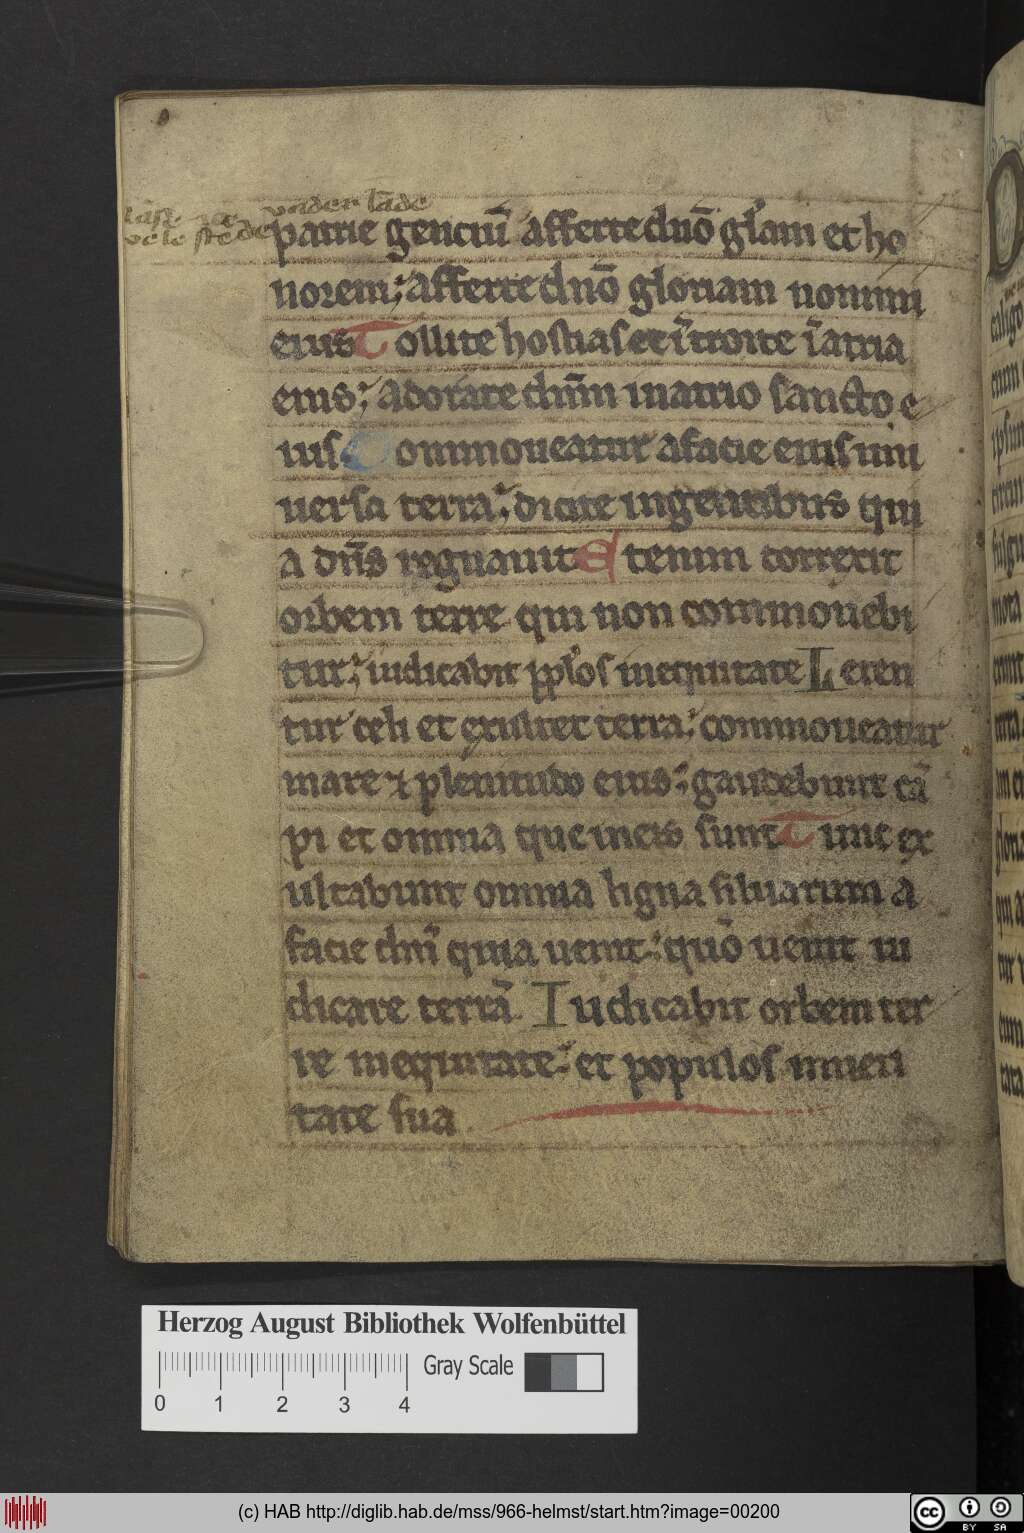 vader lāde
patrie genciū afferte dn̄o gl'am et ho
norem; afferte dn̄o gloriam nomini
eius Tollite hostias et ītroite ī atria
eius; adorate dn̄m in atrio sancto e
ius Commoueatur a facie eius uni
uersa terra; dicite in gentibus qui
a dn̄s regnauit Etenim correxit
orbem terre qui non commouebi
tur; iudicabit ppl'os in equitate Leten
tur celi et exultet terra; commoueatur
mare ⁊ plenitudo eius; gaudebunt cā
pi et omnia que in eis sunt Tunc ex
ultabunt omnia ligna siluarum a
facie dn̄i quia uenit; quō uenit iu
dicare terrā. Iudicabit orbem ter
re in equitate; et populos in ueri
tate sua.
Herzog August Bibliothek Wolfenbüttel
Gray Scale
0 1 2 3 4
(c) HAB http://diglib.hab.de/mss/966-helmst/start.htm?image=00200
cc BY SA